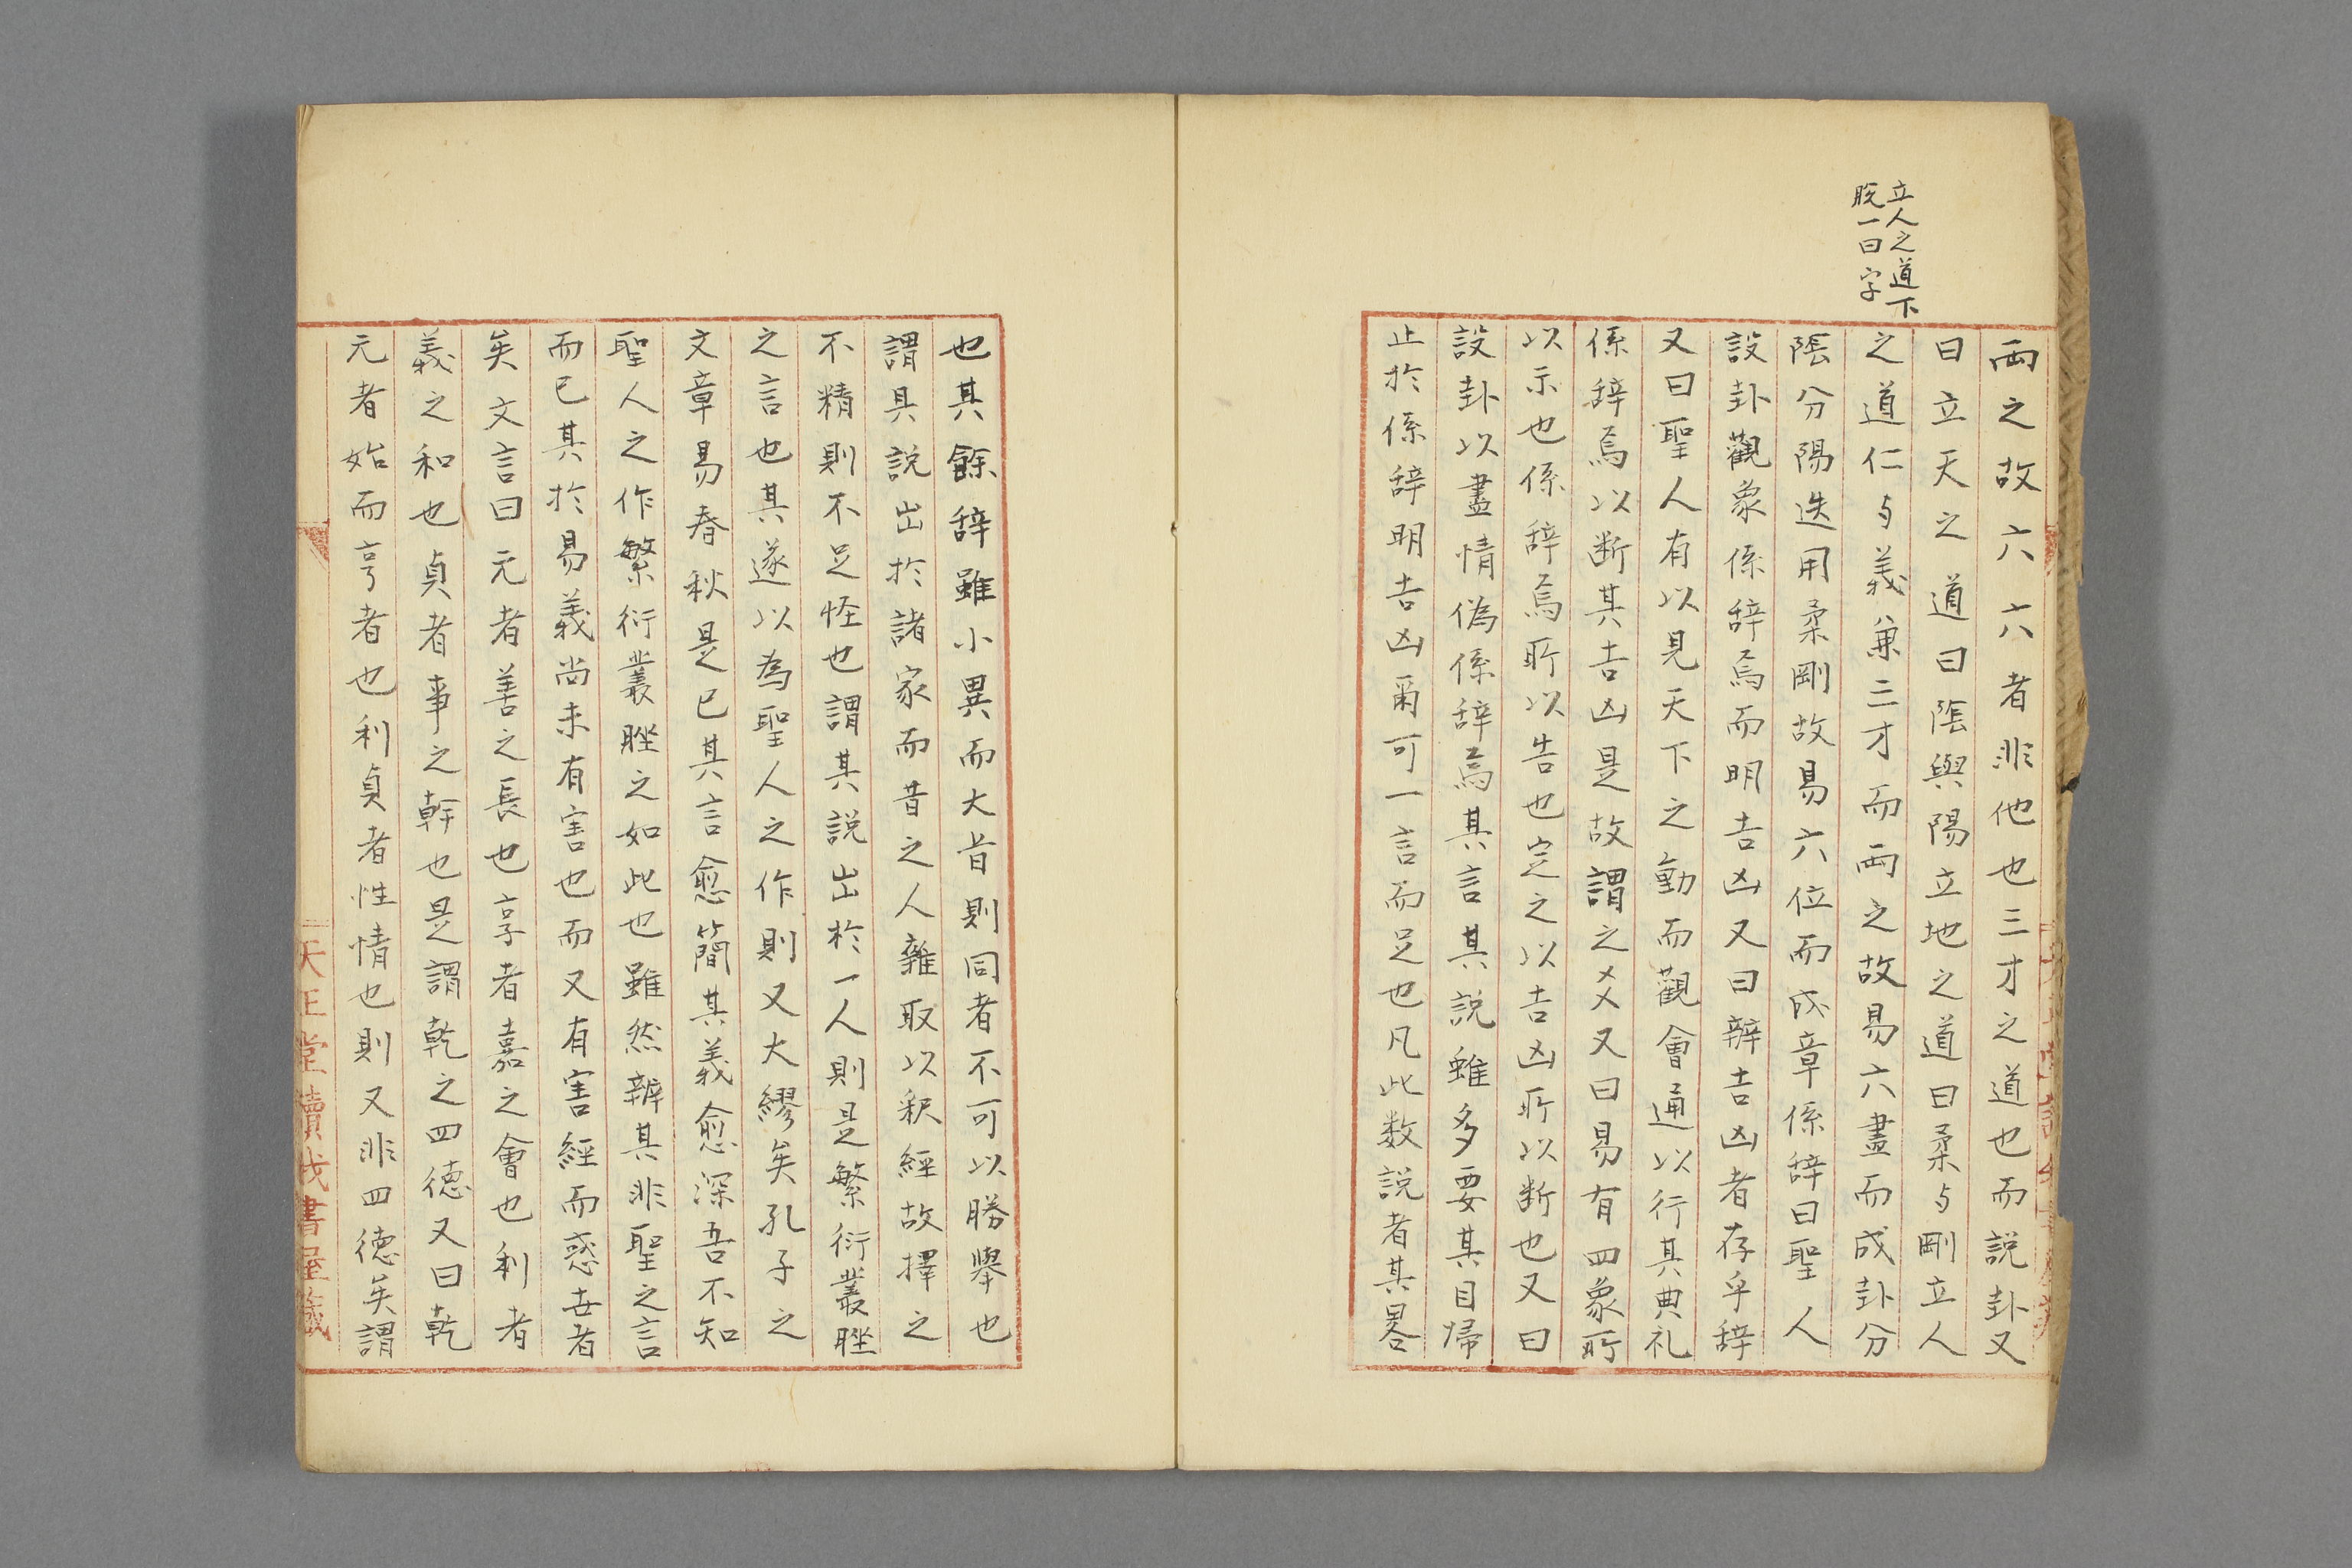 立人之道下
脫一曰字
兩之故六六者非他也三才之道也而說卦又
曰立天之道曰陰與陽立地之道曰柔与剛立人
之道仁与義兼三才而兩之故易六畫而成卦分
陰分陽迭用柔剛故易六位而成章係辞曰聖人
設卦觀象係辞焉而明吉凶又曰辨吉凶者存乎辞
又曰聖人有以見天下之動而觀會通以行其典礼
係辞焉以断其吉凶是故謂之爻又曰易有四象所
以示也係辞焉所以告也定之以吉凶所以断也又曰
設卦以盡情偽係辞焉其言其説雖多要其目帰
止於係辞明吉凶爾可一言而足也凡此数説者其畧
也其餘辞雖小異而大㫖則同者不可以勝舉也
謂其説出於諸家而昔之人雜取以釈經故擇之
不精則不足怪也謂其説出於一人則是繁衍叢脞
之言也其遂以為聖人之作則又大繆矣孔子之
文章易春秋是已其言愈簡其義愈深吾不知
聖人之作繁衍叢脞之如此也雖然辨其非聖之言
而已其於易義尚未有害也而又有害經而惑世者
矣文言曰元者善之長也亨者嘉之會也利者
義之和也貞者事之幹也是謂乾之四徳又曰乾
元者始而亨者也利貞者性情也則又非四徳矣謂
堂讀書屋蔵